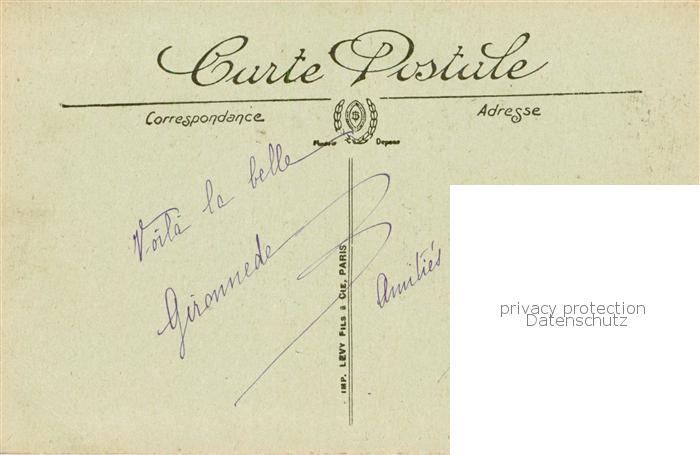 Carte Postale
Correspondance
Adresse
Voilà la belle
Gironnede
Amitiés
IMP. LEVY FILS & CIE, PARIS
privacy protection
Datenschutz